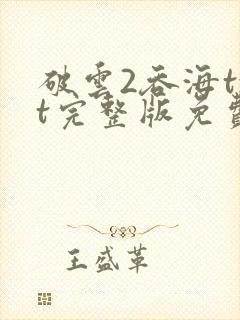 破雲2吞海t
t完整版免費
王盛革